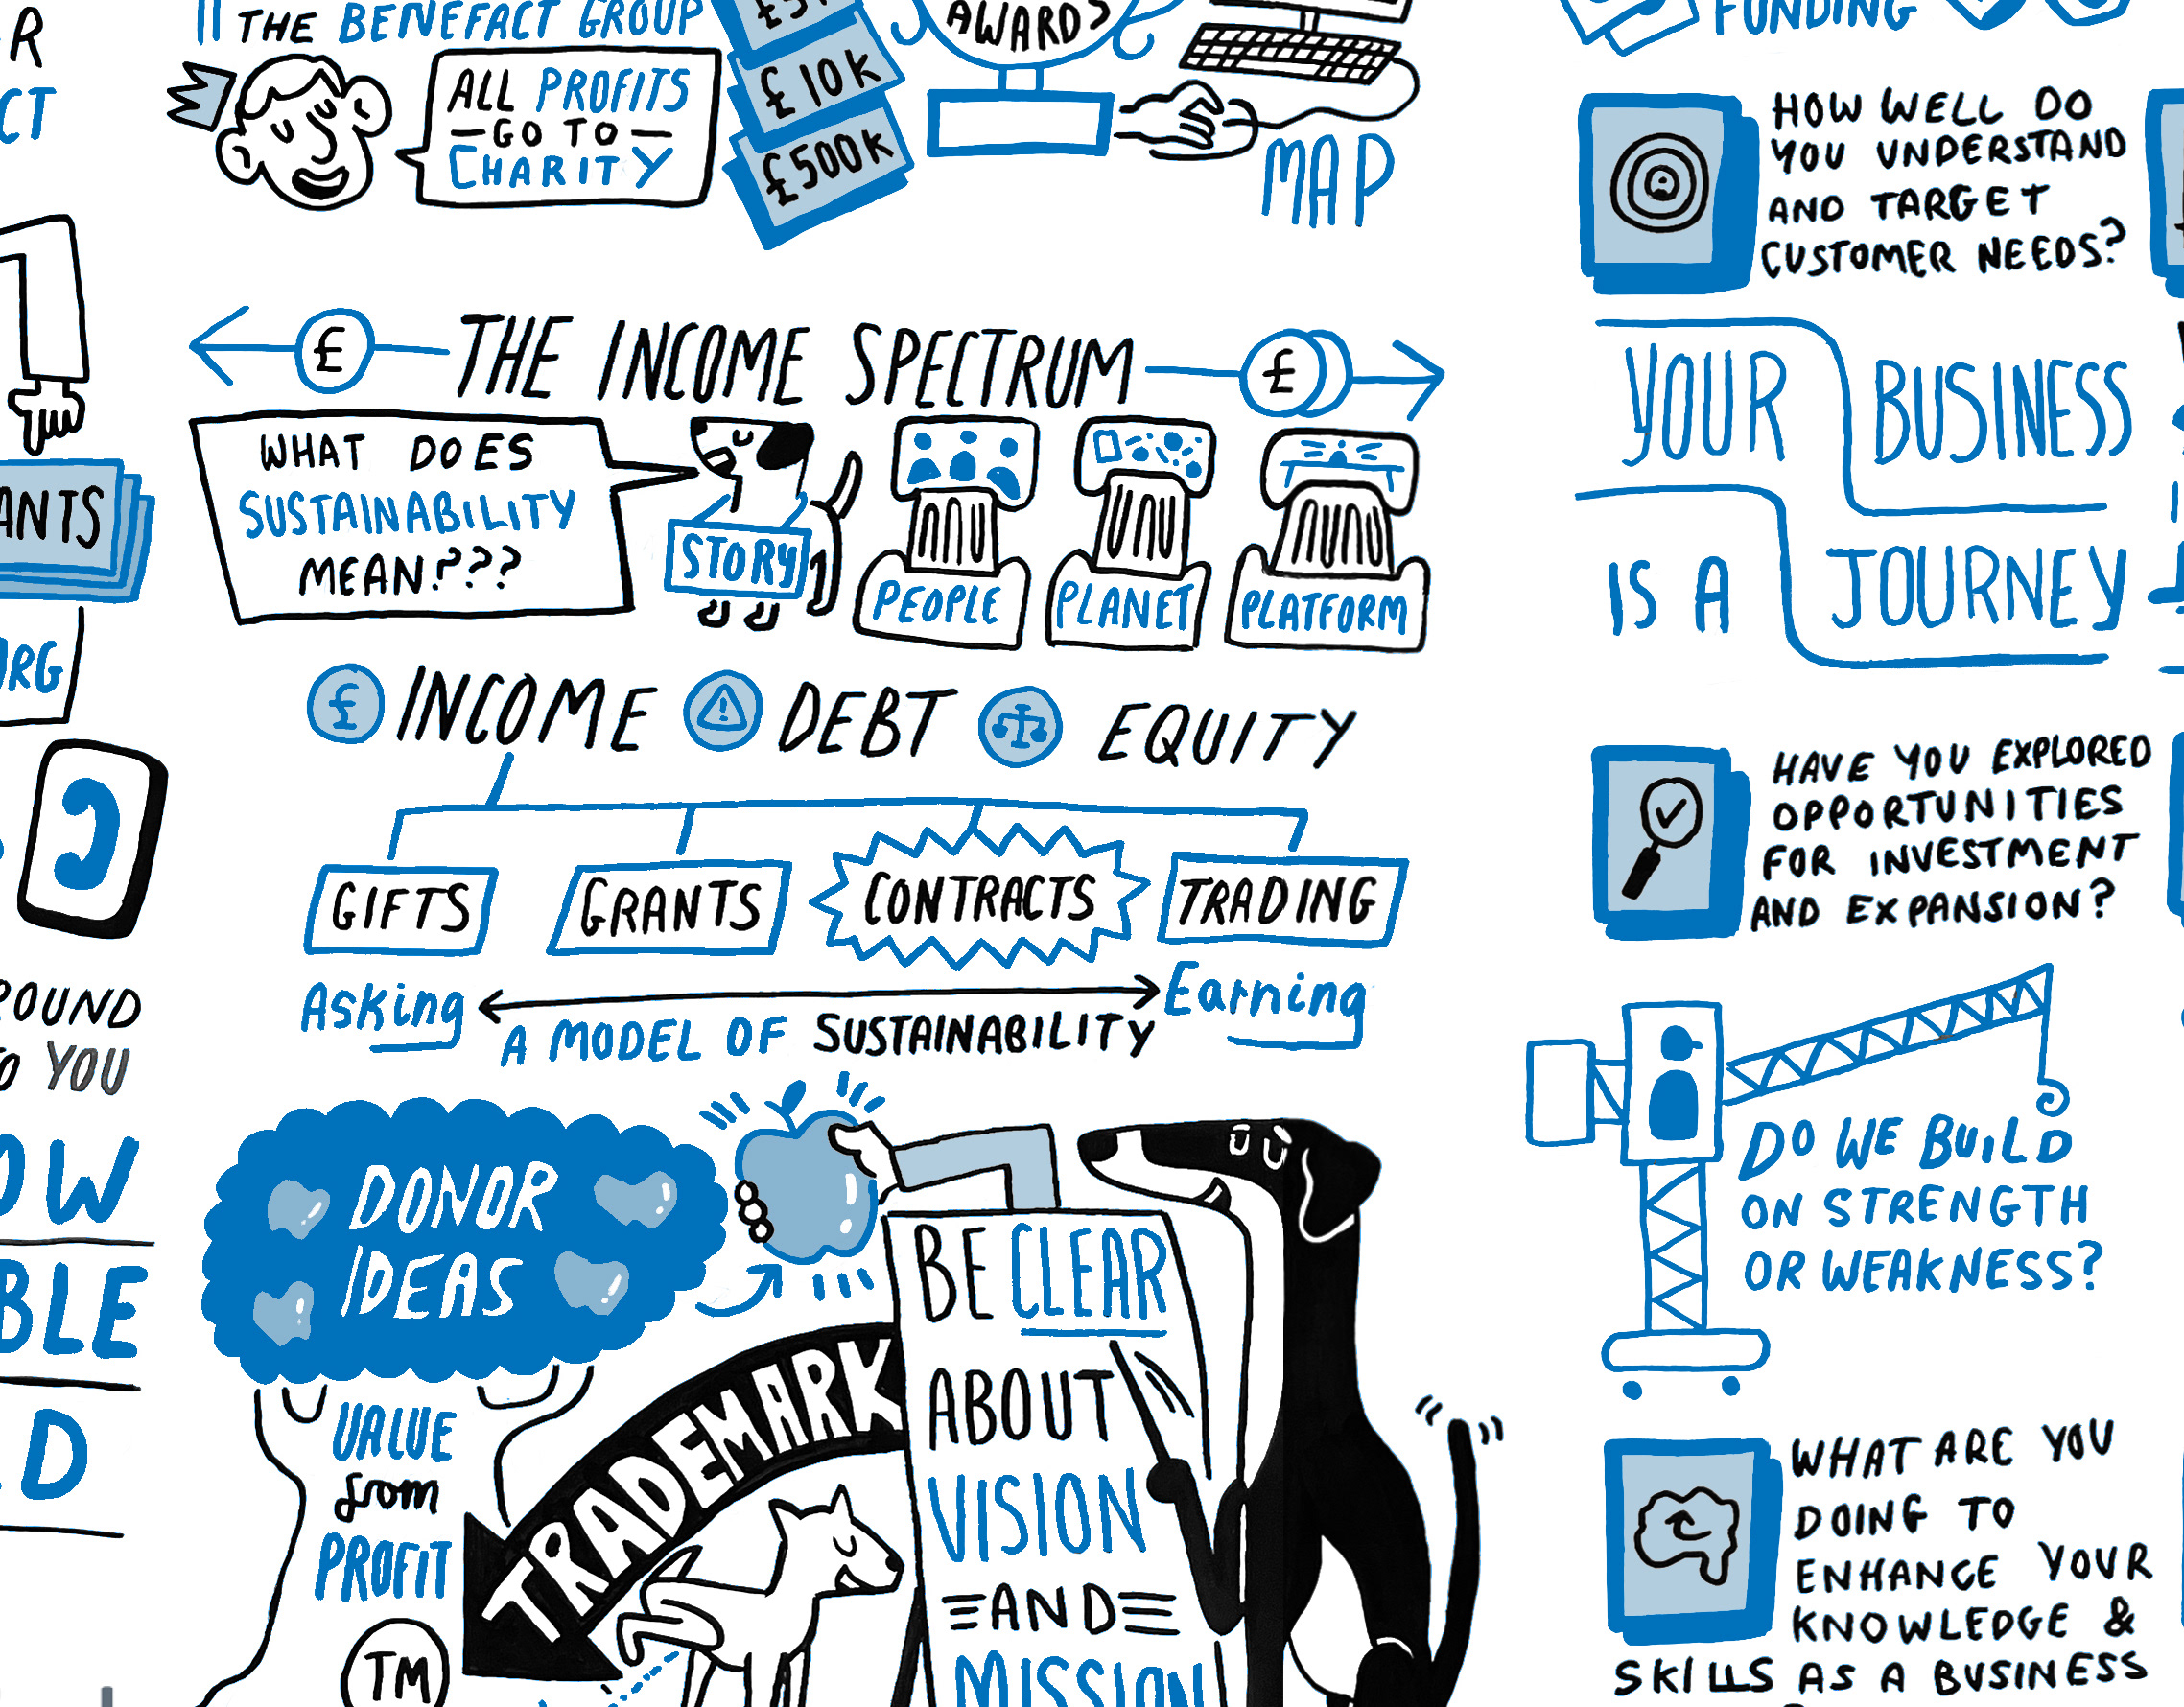 R
CT
ANTS
RG
OUND
YOU
OW
BLE
D
THE BENEFACT GROUP
ALL PROFITS
GO TO
CHARITY
£10K
£500K
AWARDS
MAP
THE INCOME SPECTRUM
£
£
WHAT DOES
SUSTAINABILITY
MEAN???
STORY
PEOPLE
PLANET
PLATFORM
£ INCOME DEBT EQUITY
GIFTS GRANTS CONTRACTS TRADING
Asking Earning
A MODEL OF SUSTAINABILITY
DONOR
IDEAS
VALUE
from
PROFIT
TM
TRADEMARK
BE CLEAR
ABOUT
VISION
AND
MISSION
FUNDING
HOW WELL DO
YOU UNDERSTAND
AND TARGET
CUSTOMER NEEDS?
YOUR BUSINESS
IS A JOURNEY
HAVE YOU EXPLORED
OPPORTUNITIES
FOR INVESTMENT
AND EXPANSION?
DO WE BUILD
ON STRENGTH
OR WEAKNESS?
WHAT ARE YOU
DOING TO
ENHANCE YOUR
KNOWLEDGE &
SKILLS AS A BUSINESS